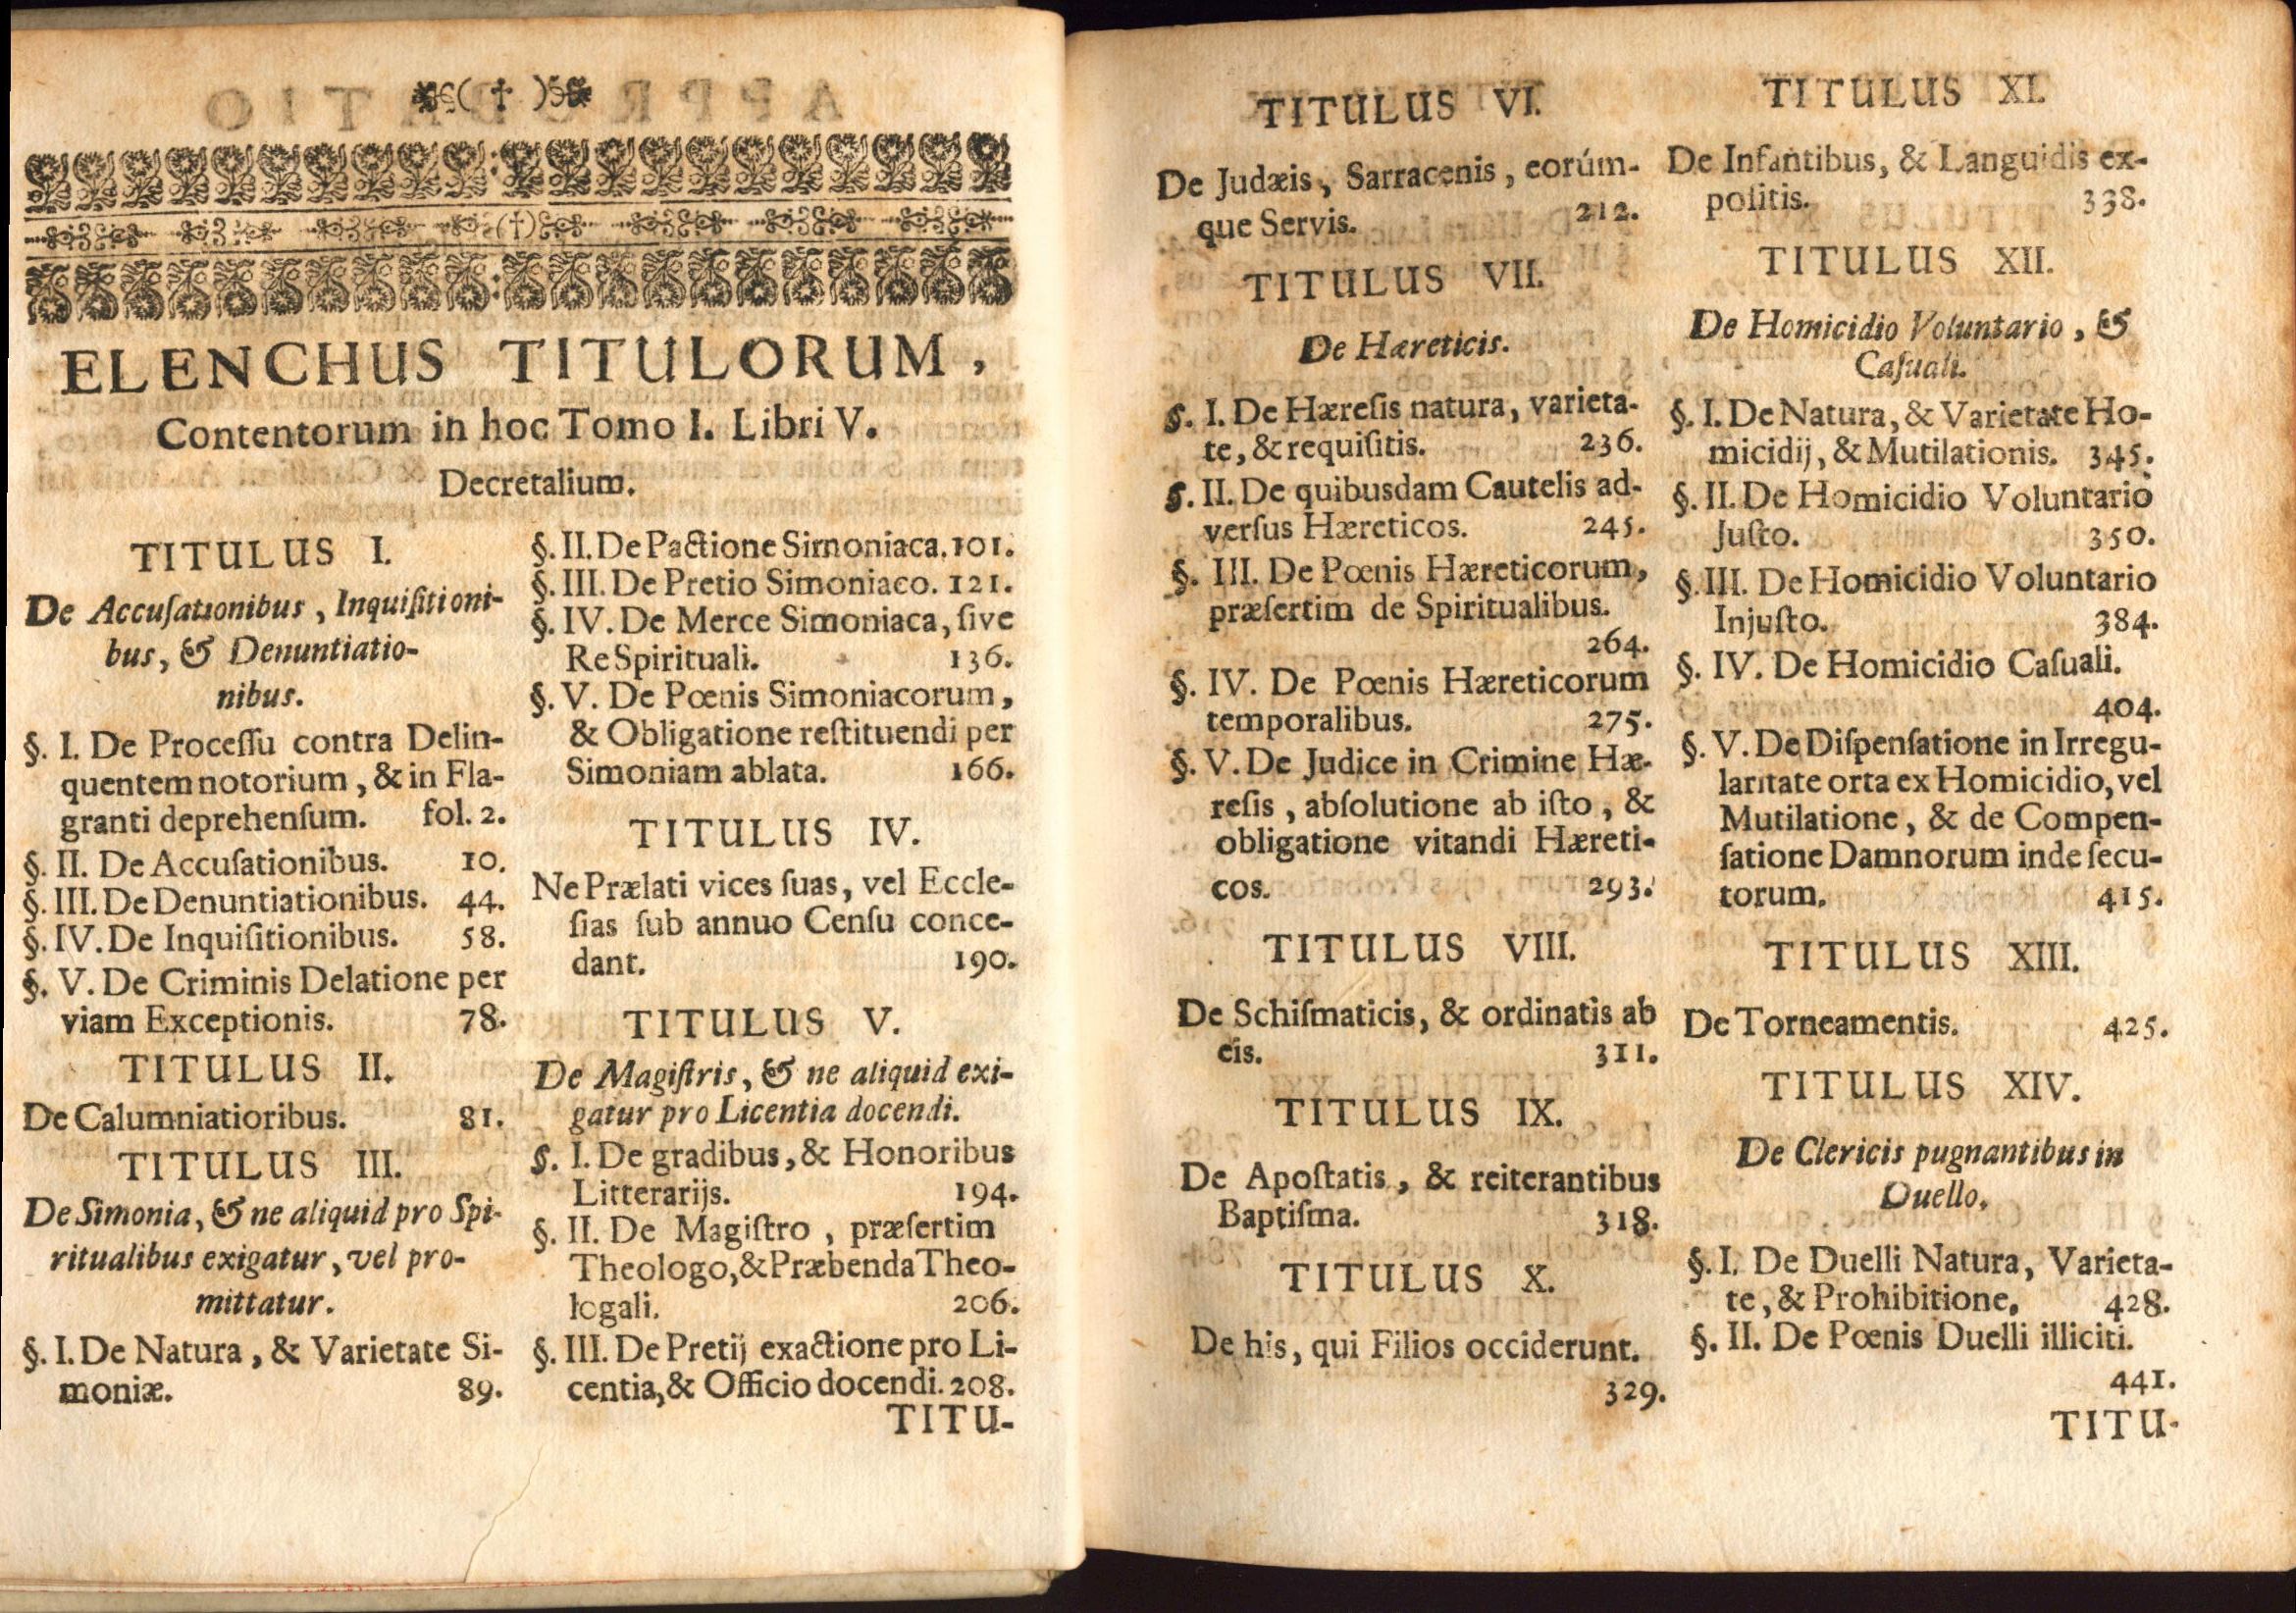 ( † )
ELENCHUS TITULORUM,
Contentorum in hoc Tomo I. Libri V.
Decretalium.
TITULUS I.
De Accuſationibus, Inquiſitioni-
bus, & Denuntiatio-
nibus.
§. I. De Proceſſu contra Delin-
quentem notorium, & in Fla-
granti deprehenſum. fol. 2.
§. II. De Accuſationibus. 10.
§. III. De Denuntiationibus. 44.
§. IV. De Inquiſitionibus. 58.
§. V. De Criminis Delatione per
viam Exceptionis. 78.
TITULUS II.
De Calumniatioribus. 81.
TITULUS III.
De Simonia, & ne aliquid pro Spi-
ritualibus exigatur, vel pro-
mittatur.
§. I. De Natura, & Varietate Si-
moniæ. 89.
§. II. De Pactione Simoniaca. 101.
§. III. De Pretio Simoniaco. 121.
§. IV. De Merce Simoniaca, ſive
Re Spirituali. 136.
§. V. De Pœnis Simoniacorum,
& Obligatione reſtituendi per
Simoniam ablata. 166.
TITULUS IV.
Ne Prælati vices ſuas, vel Eccle-
ſias ſub annuo Cenſu conce-
dant. 190.
TITULUS V.
De Magiſtris, & ne aliquid exi-
gatur pro Licentia docendi.
§. I. De gradibus, & Honoribus
Litterarijs. 194.
§. II. De Magiſtro, præſertim
Theologo, & Præbenda Theo-
logali. 206.
§. III. De Pretij exactione pro Li-
centia, & Officio docendi. 208.
TITU-
TITULUS VI.
De Judæis, Sarracenis, eorúm-
que Servis. 212.
TITULUS VII.
De Hæreticis.
§. I. De Hæreſis natura, varieta-
te, & requiſitis. 236.
§. II. De quibusdam Cautelis ad-
verſus Hæreticos. 245.
§. III. De Pœnis Hæreticorum,
præſertim de Spiritualibus.
264.
§. IV. De Pœnis Hæreticorum
temporalibus. 275.
§. V. De Judice in Crimine Hæ-
reſis, abſolutione ab iſto, &
obligatione vitandi Hæreti-
cos. 293.
TITULUS VIII.
De Schiſmaticis, & ordinatis ab
eis. 311.
TITULUS IX.
De Apoſtatis, & reiterantibus
Baptiſma. 318.
TITULUS X.
De his, qui Filios occiderunt.
329.
TITULUS XI.
De Infantibus, & Languidis ex-
poſitis. 338.
TITULUS XII.
De Homicidio Voluntario, &
Caſuali.
§. I. De Natura, & Varietate Ho-
micidij, & Mutilationis. 345.
§. II. De Homicidio Voluntario
Juſto. 350.
§. III. De Homicidio Voluntario
Injuſto. 384.
§. IV. De Homicidio Caſuali.
404.
§. V. De Diſpenſatione in Irregu-
laritate orta ex Homicidio, vel
Mutilatione, & de Compen-
ſatione Damnorum inde ſecu-
torum. 415.
TITULUS XIII.
De Torneamentis. 425.
TITULUS XIV.
De Clericis pugnantibus in
Duello.
§. I. De Duelli Natura, Varieta-
te, & Prohibitione. 428.
§. II. De Pœnis Duelli illiciti.
441.
TITU-